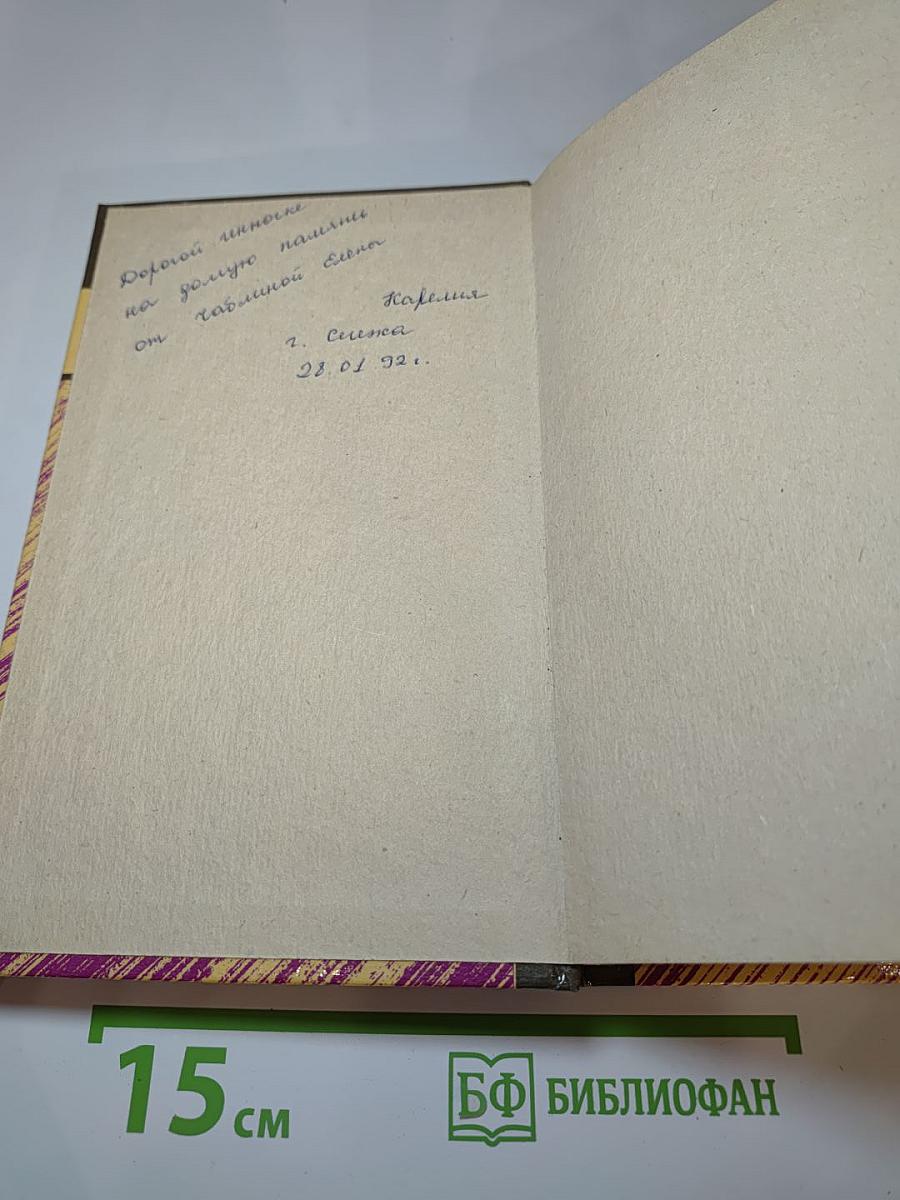 Дорогой Инночке
на долгую память
от Чаблиной Елены
Карелия
г. Сегежа
28.01.92 г.
15 см
БФ БИБЛИОФАН